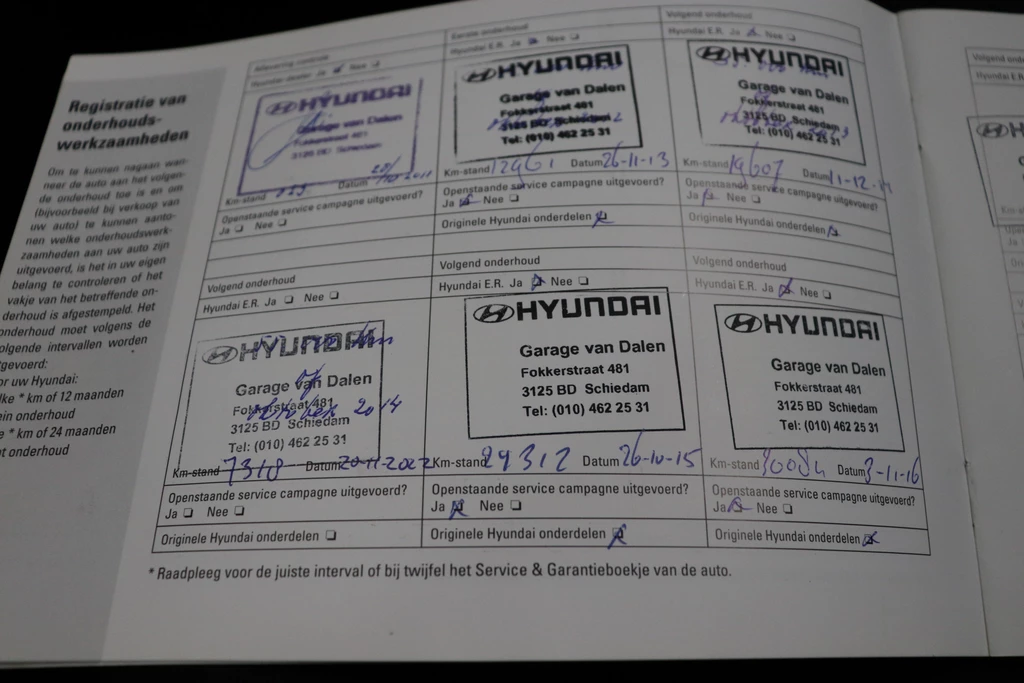 Registratie van
onderhouds-
werkzaamheden
Om te kunnen nagaan wan-
neer de auto aan het volgen-
de onderhoud toe is en om
(bijvoorbeeld bij verkoop van
uw auto) te kunnen aanto-
nen welke onderhoudswerk-
zaamheden aan uw auto zijn
uitgevoerd, is het in uw eigen
belang te controleren of het
vakje van het betreffende on-
derhoud is afgestempeld. Het
onderhoud moet volgens de
olgende intervallen worden
gevoerd:
or uw Hyundai:
lke * km of 12 maanden
ein onderhoud
e * km of 24 maanden
t onderhoud
Aflevering controle
Ja Nee
HYUNDAI
Garage van Dalen
Fokkerstraat 481
3125 BD Schiedam
Km-stand Datum 2011
Openstaande service campagne uitgevoerd?
Ja Nee
Eerste onderhoud
Hyundai E.R. Ja Nee
HYUNDAI
Garage van Dalen
Fokkerstraat 481
3125 BD Schiedam
Tel: (010) 462 25 31
Km-stand 12961 Datum 26-11-13
Openstaande service campagne uitgevoerd?
Ja Nee
Originele Hyundai onderdelen
Volgend onderhoud
Hyundai E.R. Ja Nee
HYUNDAI
Garage van Dalen
Fokkerstraat 481
3125 BD Schiedam
Tel: (010) 462 25 31
Km-stand 19607 Datum
Openstaande service campagne uitgevoerd?
Ja Nee
Originele Hyundai onderdelen
Volgend onderhoud
Hyundai E.R. Ja Nee
HYUNDAI
Garage van Dalen
Fokkerstraat 481
3125 BD Schiedam
2014
Tel: (010) 462 25 31
Km-stand 7318 Datum 20-11-2012
Openstaande service campagne uitgevoerd?
Ja Nee
Originele Hyundai onderdelen
Volgend onderhoud
Hyundai E.R. Ja Nee
HYUNDAI
Garage van Dalen
Fokkerstraat 481
3125 BD Schiedam
Tel: (010) 462 25 31
Km-stand 29312 Datum 26-10-15
Openstaande service campagne uitgevoerd?
Ja Nee
Originele Hyundai onderdelen
Volgend onderhoud
Hyundai E.R. Ja Nee
HYUNDAI
Garage van Dalen
Fokkerstraat 481
3125 BD Schiedam
Tel: (010) 462 25 31
Km-stand Datum 3-11-16
Openstaande service campagne uitgevoerd?
Ja Nee
Originele Hyundai onderdelen
* Raadpleeg voor de juiste interval of bij twijfel het Service & Garantieboekje van de auto.